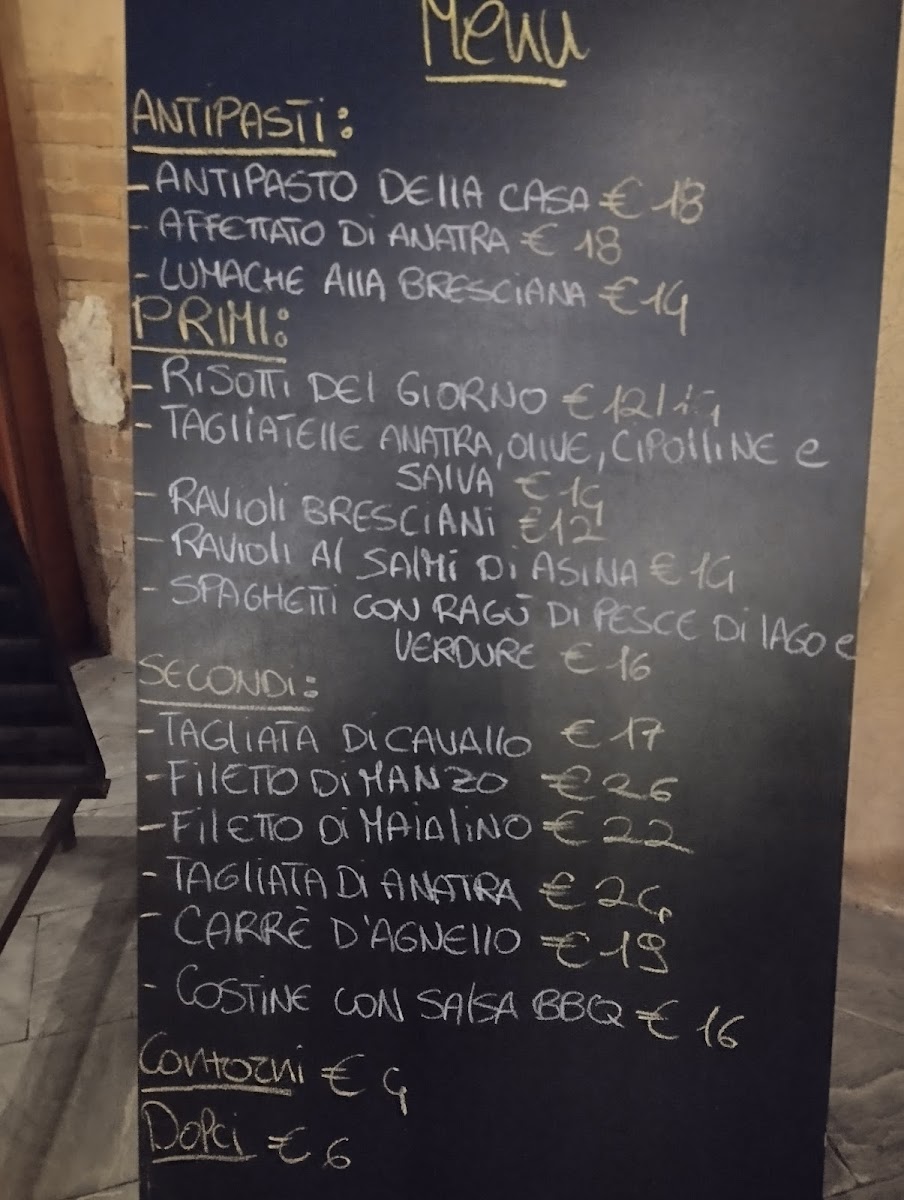 Menu
ANTIPASTI:
- ANTIPASTO DELLA CASA € 18
- AFFETTATO DI ANATRA € 18
- LUMACHE ALLA BRESCIANA € 14
PRIMI:
- RISOTTI DEL GIORNO € 12/14
- TAGLIATELLE ANATRA, OLIVE, CIPOLLINE e
SALVA € 14
- RAVIOLI BRESCIANI € 12
- RAVIOLI AL SALMÌ DI ASINA € 14
- SPAGHETTI CON RAGÙ DI PESCE DI LAGO e
VERDURE € 16
SECONDI:
- TAGLIATA DI CAVALLO € 17
- FILETTO DI MANZO € 26
- FILETTO DI MAIALINO € 22
- TAGLIATA DI ANATRA € 24
- CARRÈ D'AGNELLO € 19
- COSTINE CON SALSA BBQ € 16
Contorni € 4
Dolci € 6